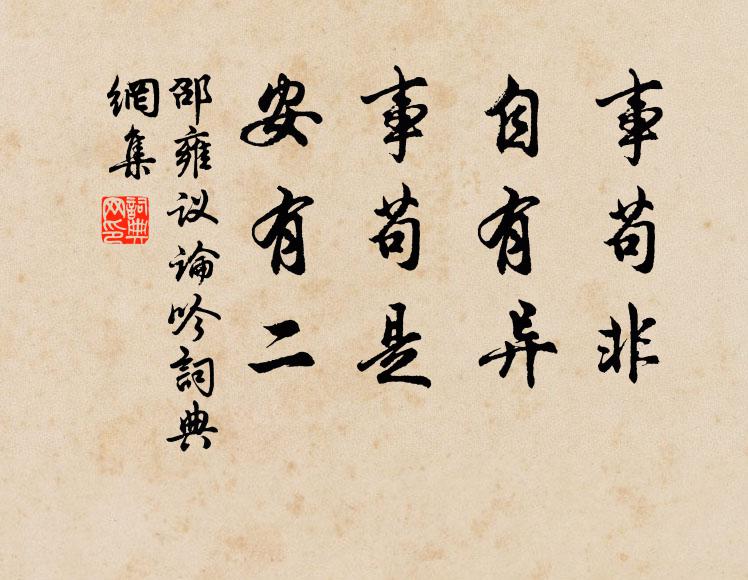 事苟非
自有异
事苟是
安有二
邵雍议论吟詞典
網集
詞典
网印